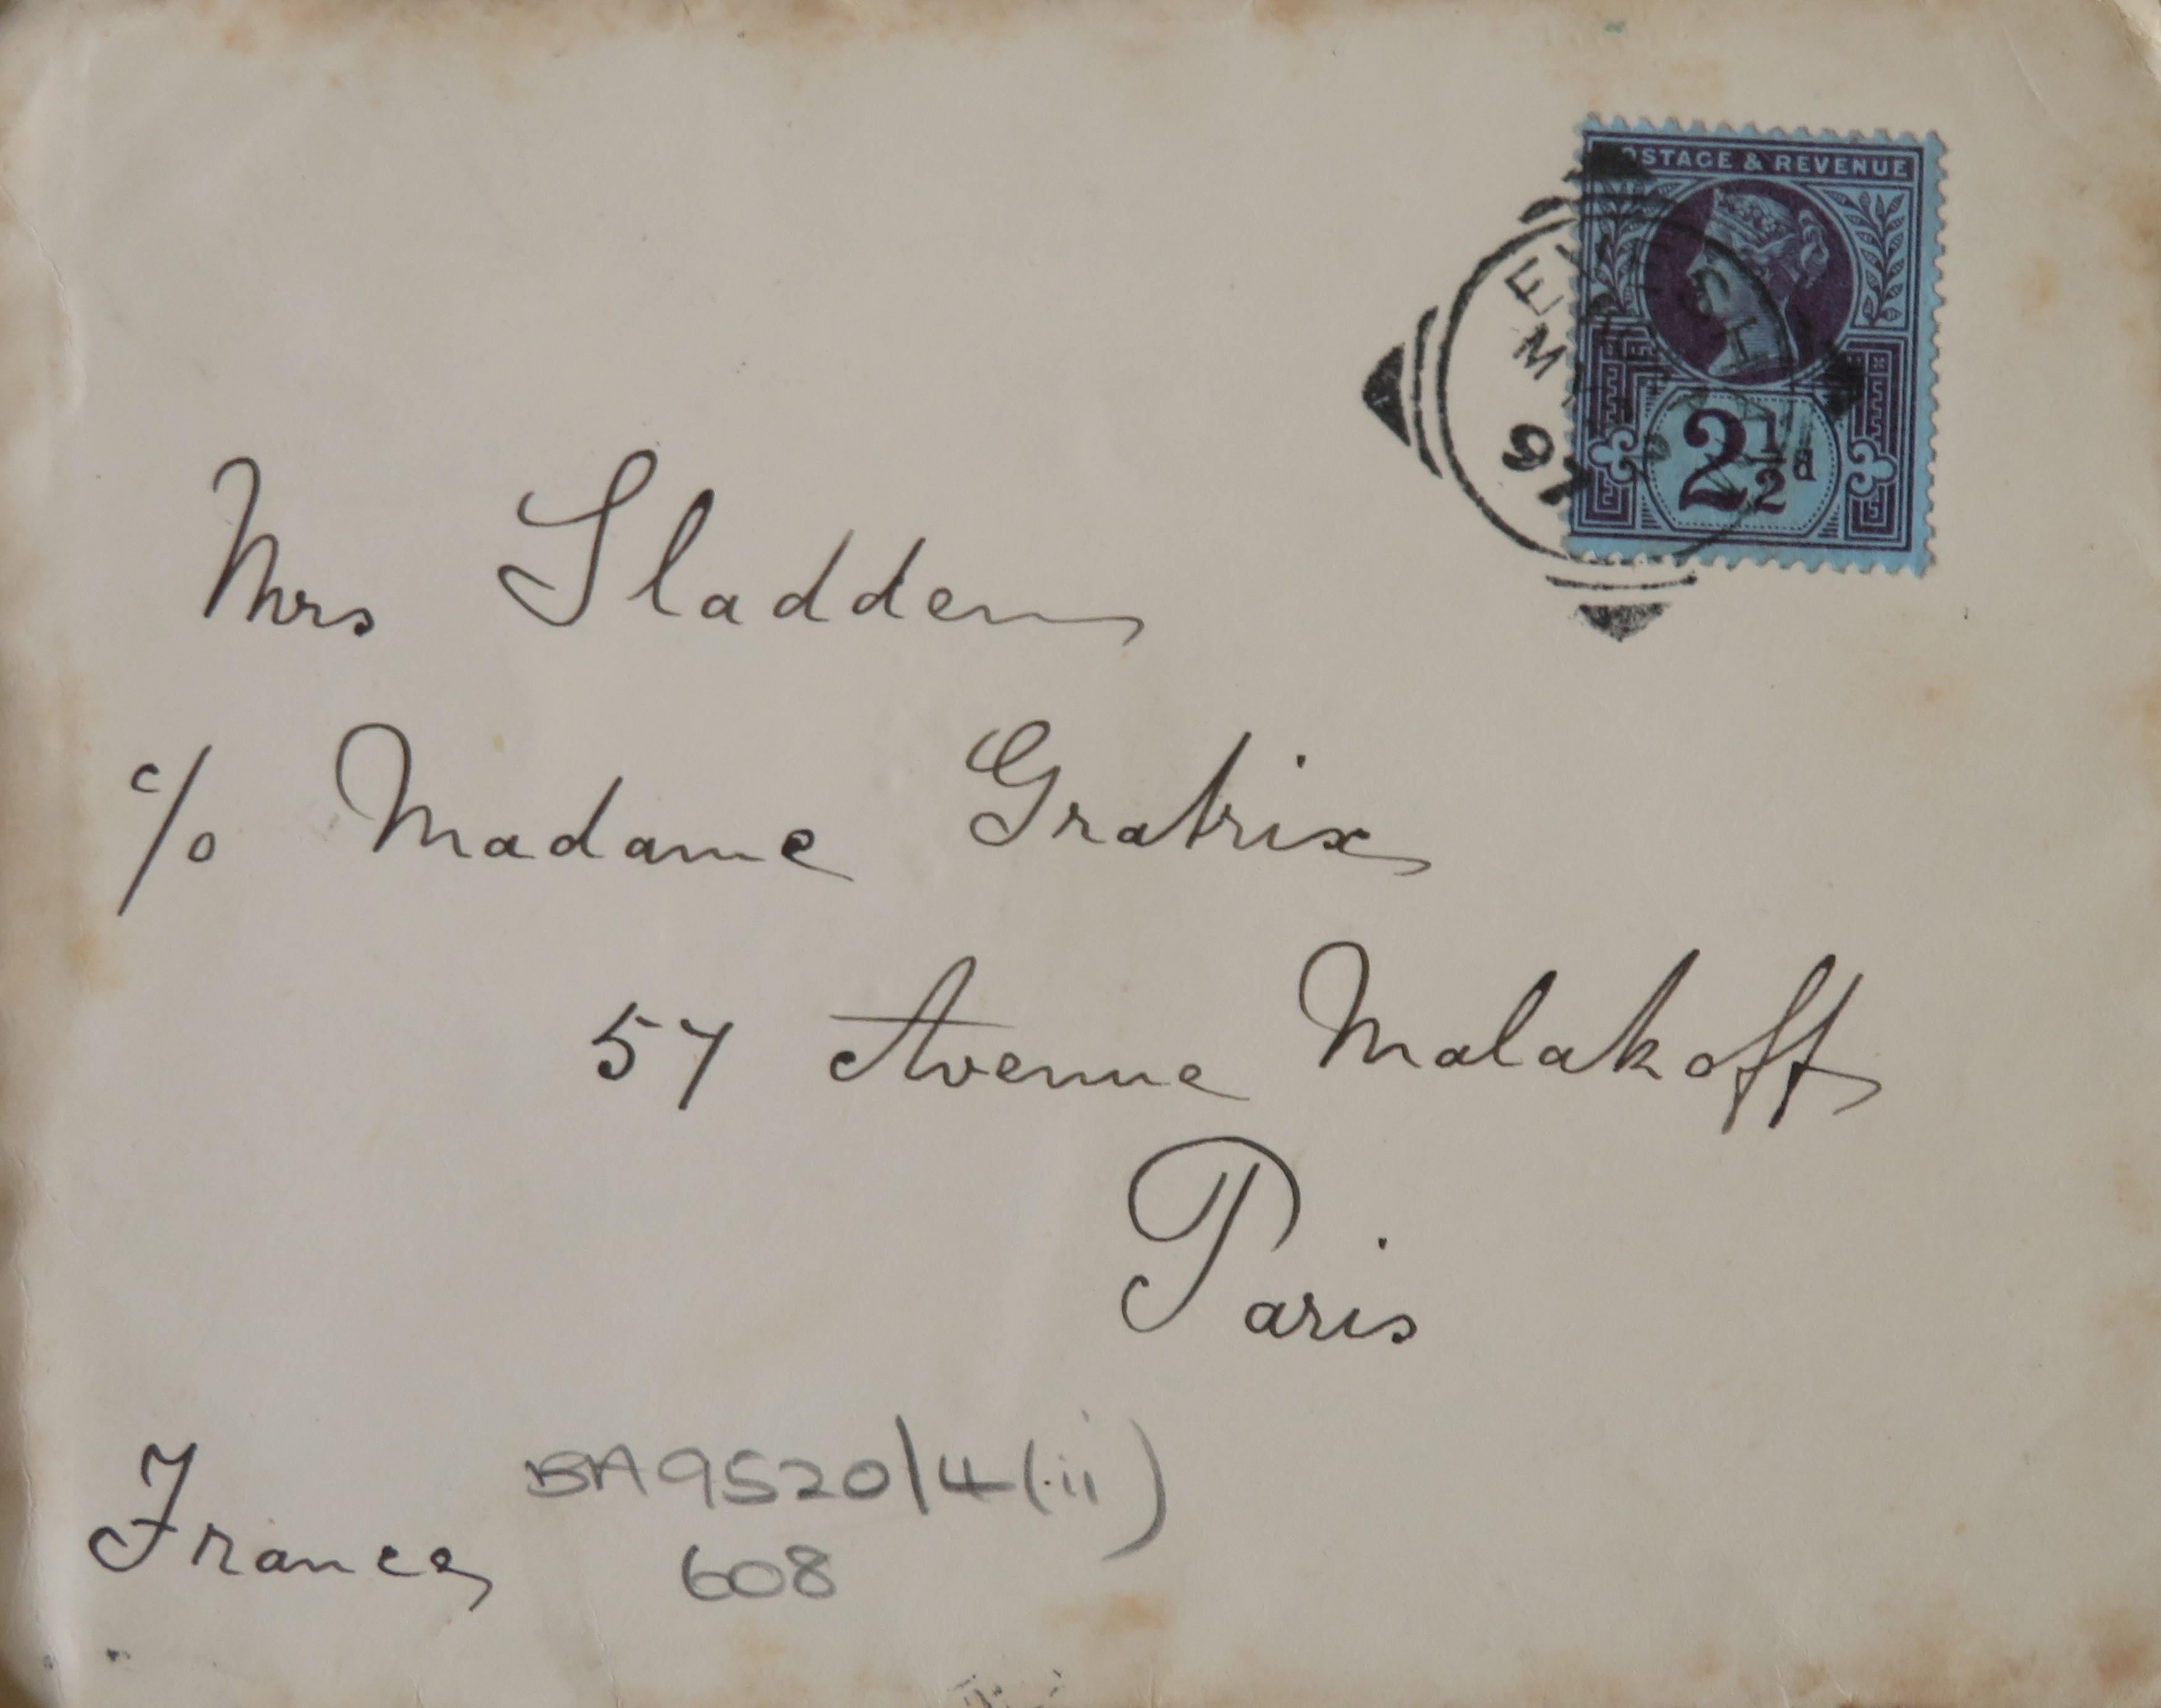 POSTAGE & REVENUE
2½d
97
Mrs Sladden
c/o Madame Gratrix
57 Avenue Malakoff
Paris
France
BA9520/4(ii)
608